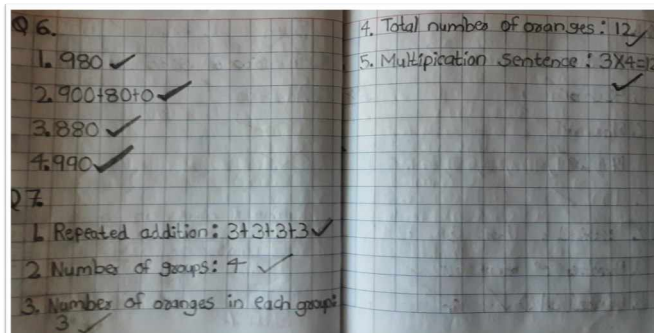 Q 6.
1. 980
2. 900+80+0
3. 880
4. 990
Q 7.
1. Repeated addition: 3+3+3+3
2. Number of groups: 4
3. Number of oranges in each group:
3
4. Total number of oranges: 12
5. Multipication Sentence: 3×4=12